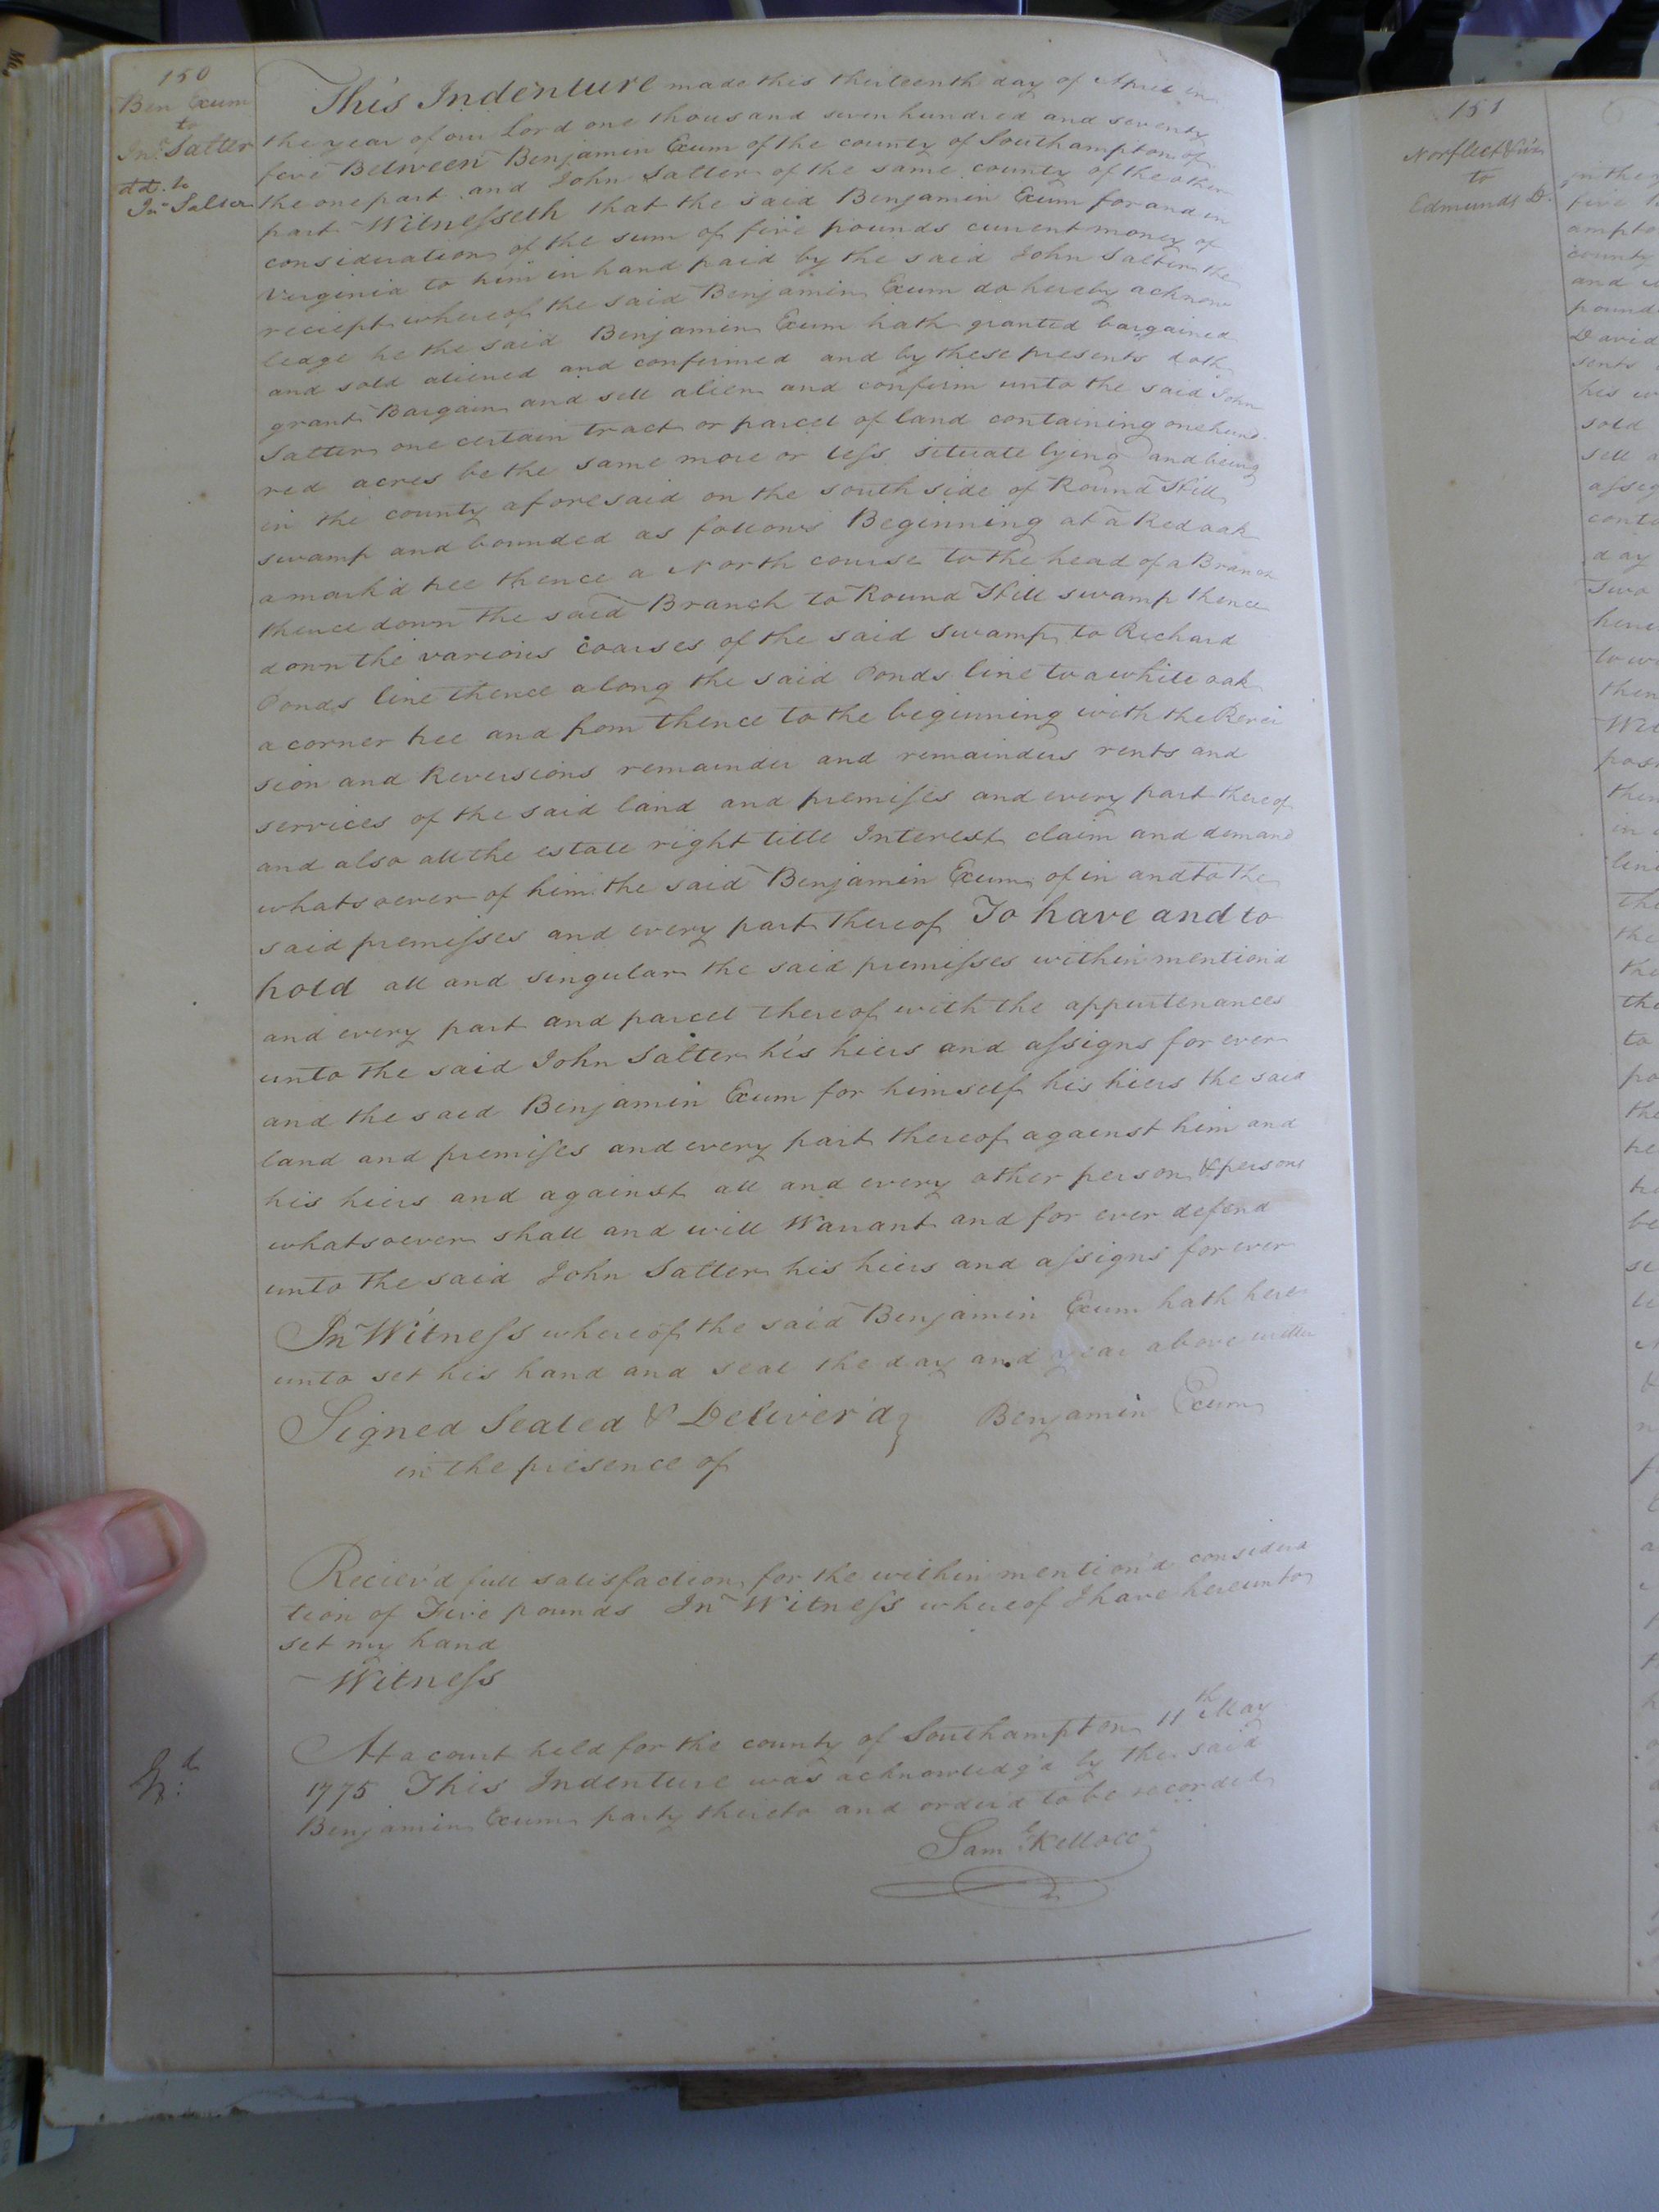 150
Ben Exum
to
Jn.º Salter
dd. to
Jn.º Salter
This Indenture made this thirteenth day of April in
the year of our Lord one thousand seven hundred and seventy
five Between Benjamin Exum of the county of Southampton of
the one part and John Salter of the same county of the other
part Witnesseth that the said Benjamin Exum for and in
consideration of the sum of five pounds current money of
Virginia to him in hand paid by the said John Salter the
reciept whereof the said Benjamin Exum do hereby acknow
ledge he the said Benjamin Exum hath granted bargained
and sold aliened and confirmed and by these presents doth
grant Bargain and sell alien and confirm unto the said John
Salter one certain tract or parcel of land containing one hund
red acres be the same more or less situate lying and being
in the county aforesaid on the south side of Round Hill
swamp and bounded as follows Beginning at a Red oak
a mark'd tree thence a North course to the head of a Branch
thence down the said Branch to Round Hill swamp thence
down the various coarses of the said swamp to Richard
Ponds line thence along the said Ponds line to a white oak
a corner tree and from thence to the beginning with the Rever
sion and Reversions remainder and remainders rents and
services of the said land and premises and every part thereof
and also all the estate right title Interest claim and demand
whatsoever of him the said Benjamin Exum of in and to the
said premisses and every part thereof To have and to
hold all and singular the said premisses within mention'd
and every part and parcel thereof with the appurtenances
unto the said John Salter his hiers and assigns for ever
and the said Benjamin Exum for himself his hiers the said
land and premises and every part thereof against him and
his hiers and against all and every other person & persons
whatsoever shall and will Warrant and for ever defend
unto the said John Salter his hiers and assigns for ever
In Witness whereof the said Benjamin Exum hath here
unto set his hand and seal the day and year above written
Signed Sealed & Deliver'd } Benjamin Exum
in the presence of
Reciev'd full satisfaction for the within mention'd considera
tion of Five pounds In Witness whereof I have hereunto
set my hand
Witness
At a court held for the county of Southampton 11th May
1775 This Indenture was acknowledg'd by the said
Benjamin Exum party thereto and order'd to be recorded
Sam.l Kello CC
151
Norfleet & Ux
to
Edmunds D.
in the y
five B
ampto
county
and
pound
David
sents
his w
sold
sell a
assig
conta
day
Two
here
to w
then
Wes
pos
then
in
line
the
the
the
the
to
po
the